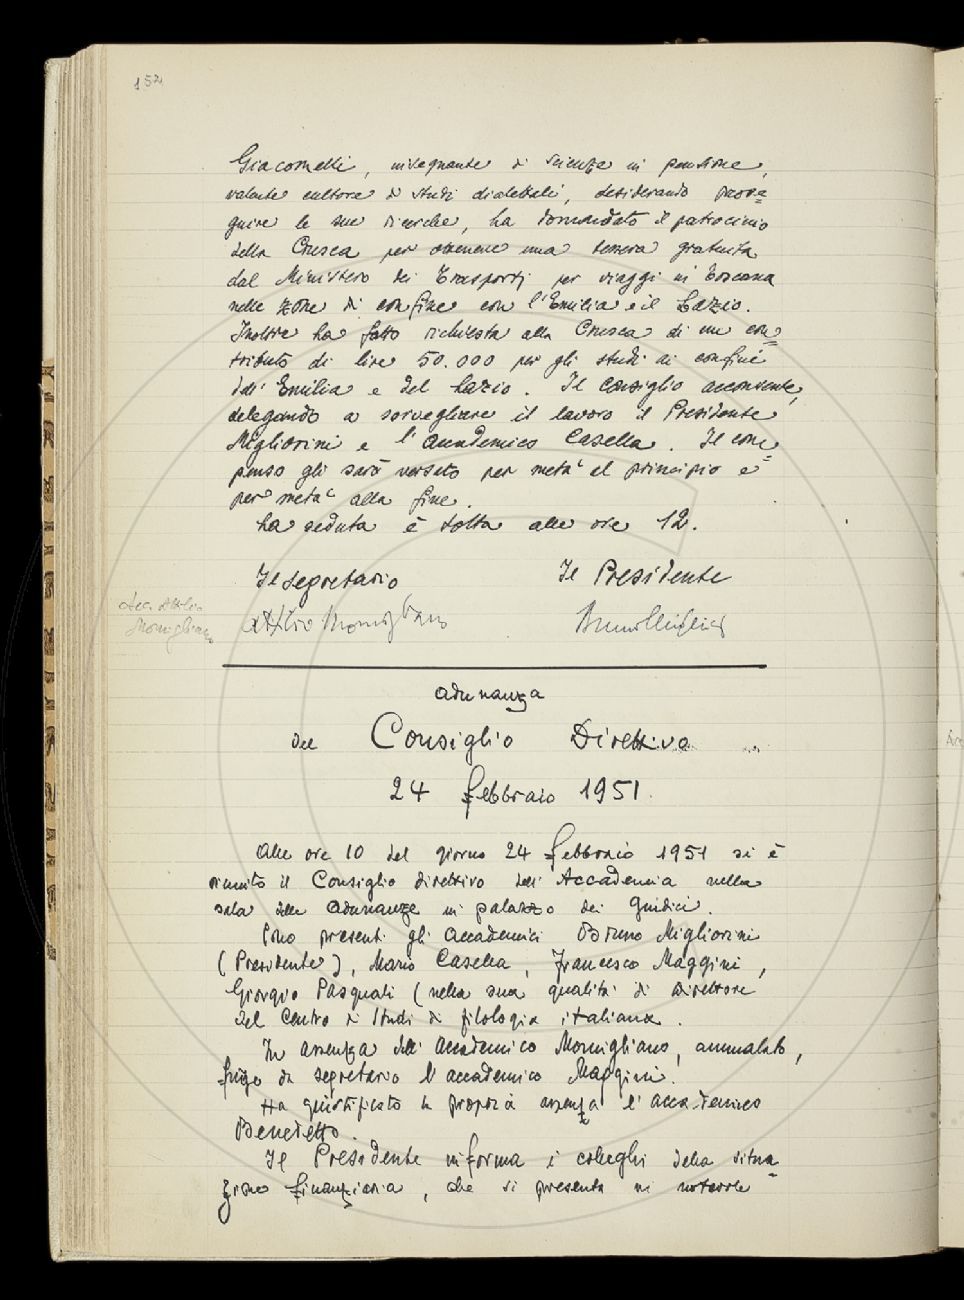 152
Giacomelli, insegnante di scienze in pensione,
valente cultore di studi dialettali, desiderando prose=
guire le sue ricerche, ha domandato il patrocinio
della Crusca per ottenere una tessera gratuita
dal Ministero dei Trasporti per viaggi in Toscana
nelle zone di confine con l'Emilia e il Lazio.
Inoltre ha fatto richiesta alla Crusca di un con=
tributo di lire 50.000 per gli studi ai confini
dell'Emilia e del Lazio. Il Consiglio acconsente,
delegando a sorvegliare il lavoro il Presidente
Migliorini e l'Accademico Casella. Il com=
penso gli sarà versato per metà al principio e
per metà alla fine.
La seduta è tolta alle ore 12.
Il segretario Il Presidente
Acc. Attilio
Momigliano
Attilio Momigliano Bruno Migliorini
Adunanza
del Consiglio Direttivo
24 febbraio 1951.
Alle ore 10 del giorno 24 febbraio 1951 si è
riunito il Consiglio direttivo dell'Accademia nella
sala delle Adunanze in palazzo dei Giudici.
Sono presenti gli Accademici Bruno Migliorini
(Presidente), Mario Casella, Francesco Maggini,
Giorgio Pasquali (nella sua qualità di Direttore
del Centro di Studi di filologia italiana.
In assenza dell'Accademico Momigliano, ammalato,
funge da segretario l'accademico Maggini.
Ha giustificato la propria assenza l'accademico
Benedetto.
Il Presidente informa i colleghi della situa=
zione finanziaria, che si presenta in notevole